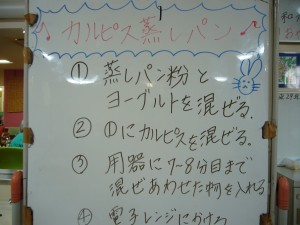 カルピス蒸しパン
① 蒸しパン粉と
ヨーグルトを混ぜる.
② ①にカルピスを混ぜる.
③ 用器に7-8分目まで
混ぜあわせた物を入れる
④ 電子レンジにかける